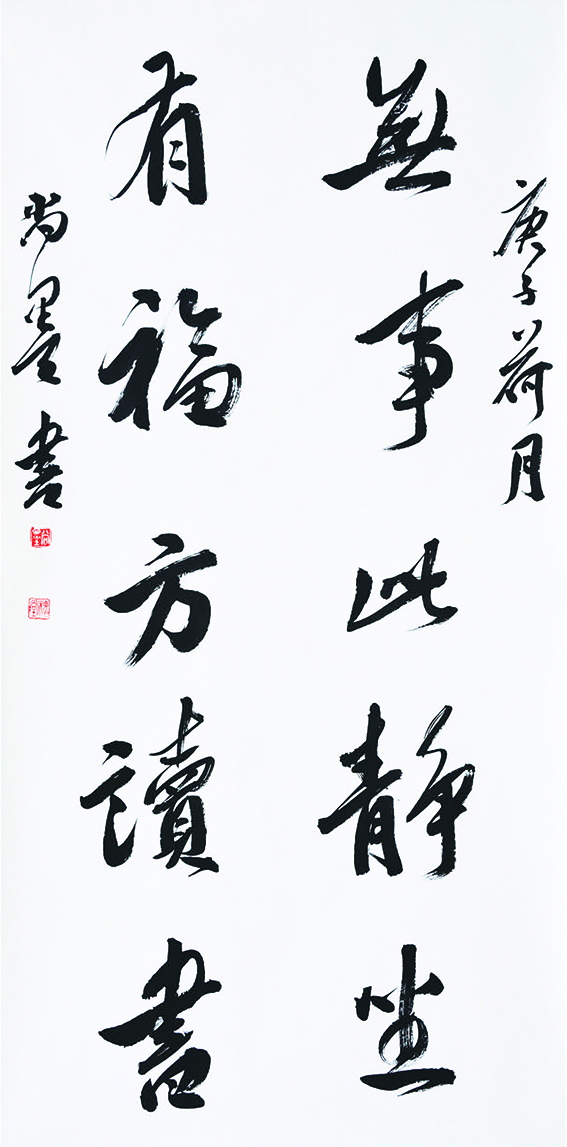 庚子荷月
無事此靜坐
有福方讀書
尚墨書